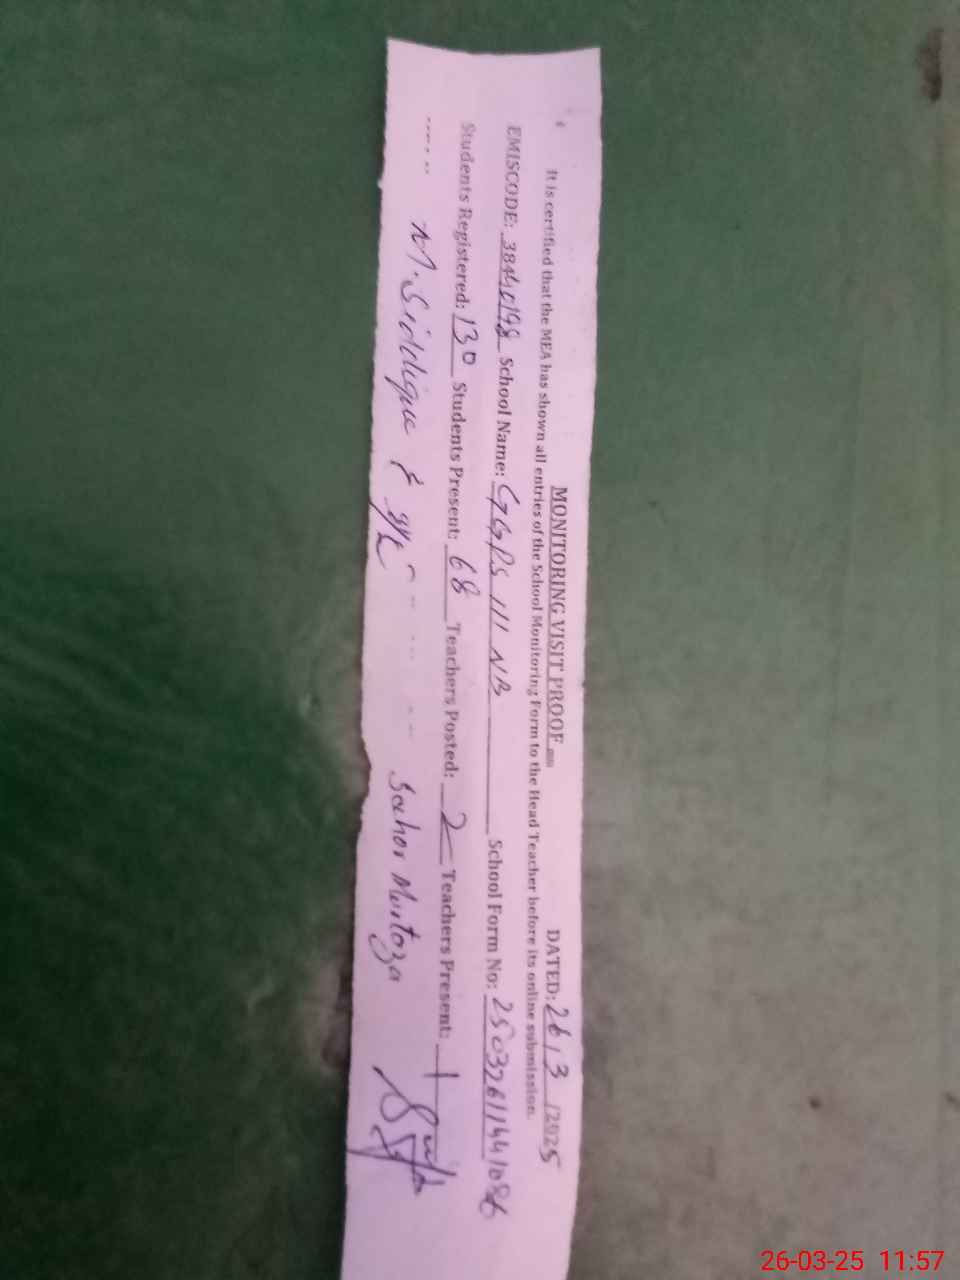 MONITORING VISIT PROOF
DATED: 26/3/2025
It is certified that the MEA has shown all entries of the School Monitoring Form to the Head Teacher before its online submission.
EMISCODE: 38440198 School Name: GGPS 111 NB School Form No:
Students Registered: 130 Students Present: 68 Teachers Posted: 2 Teachers Present: 1
M. Siddique Sehar Murtaza
26-03-25 11:57